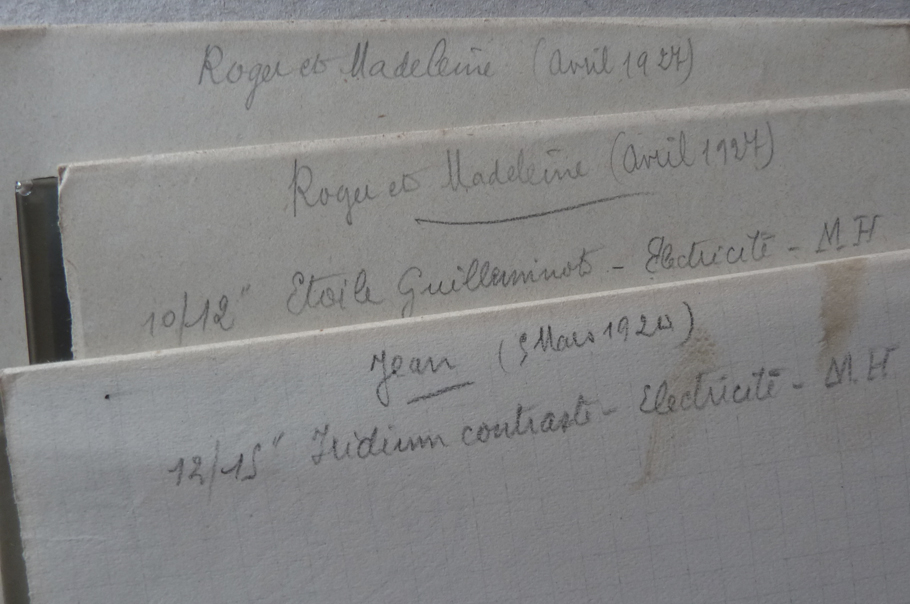 Roger et Madeleine (Avril 1927)
Roger et Madeleine (Avril 1927)
10/12" Etoile Guilleminot - Electricité - M H
Jean (5 Mars 1924)
12/15" Iridium contraste - Electricité - M. H